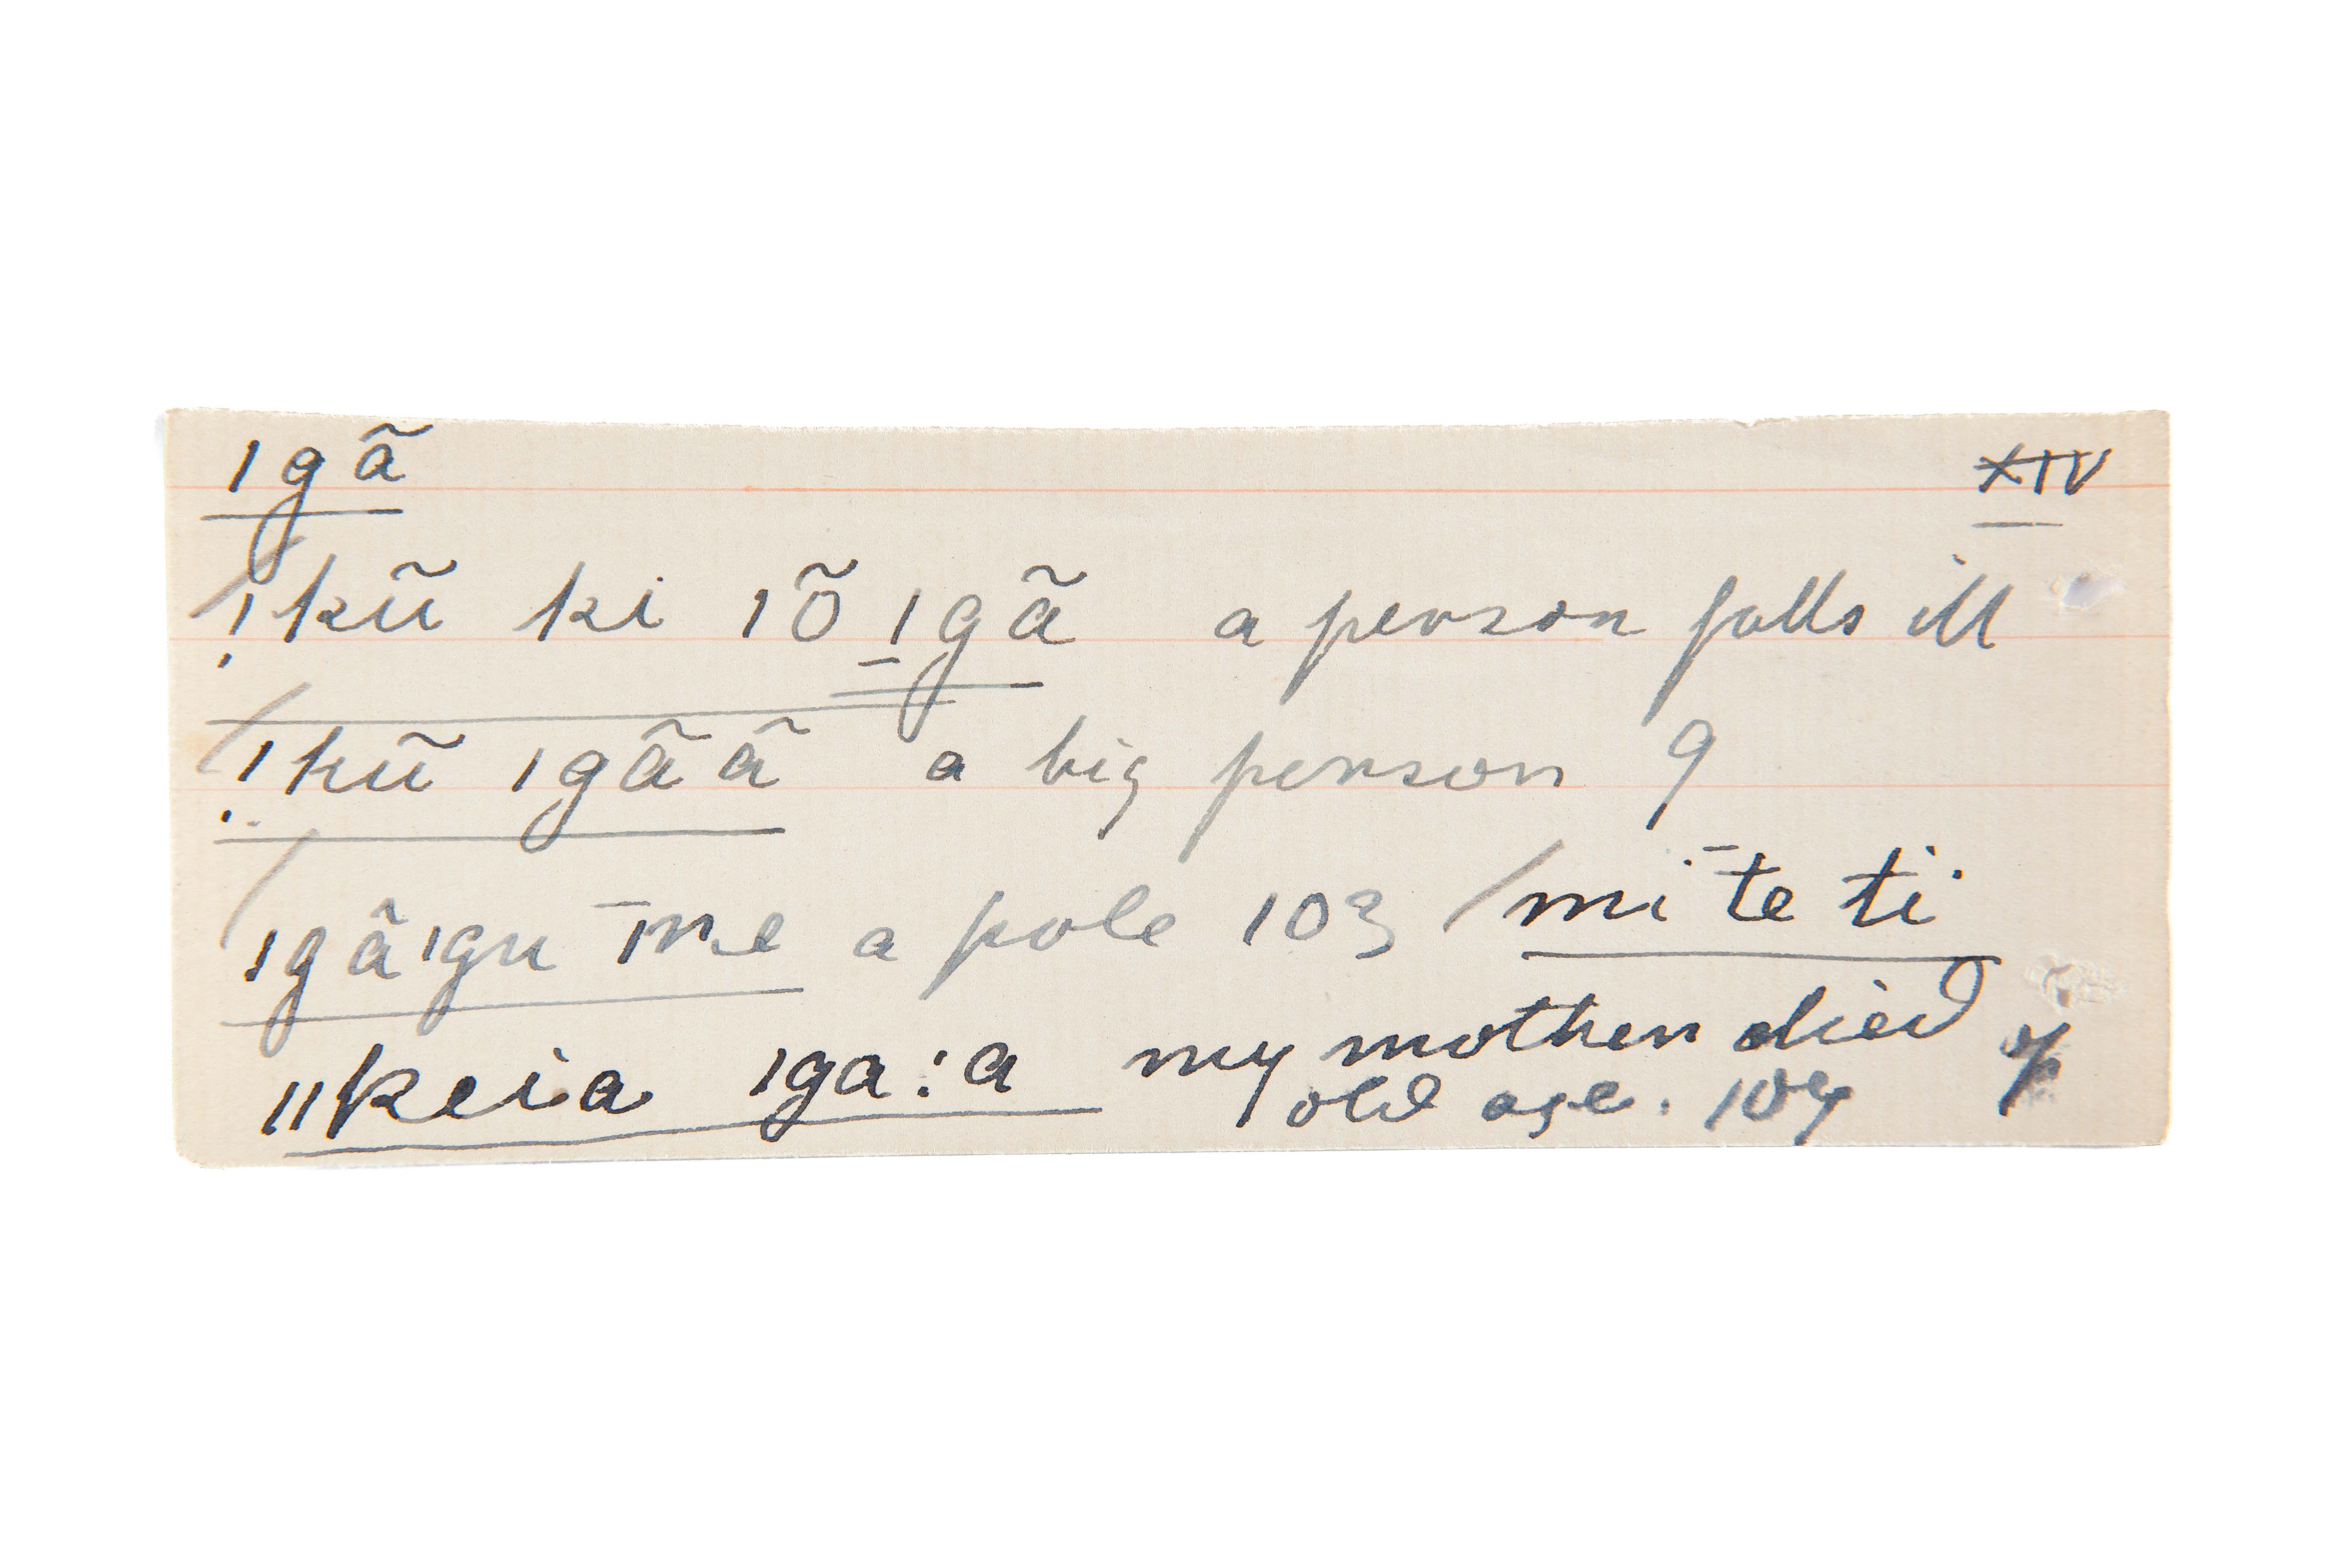 ǀgã XIV
!kũ ki ǀõ ǀgã a person falls ill
!kũ ǀgãã a big person 9
ǀgãǀgu īne a pole 103 /mi te ti
ǁkeia ǀga:a my mother died of
old age. 104